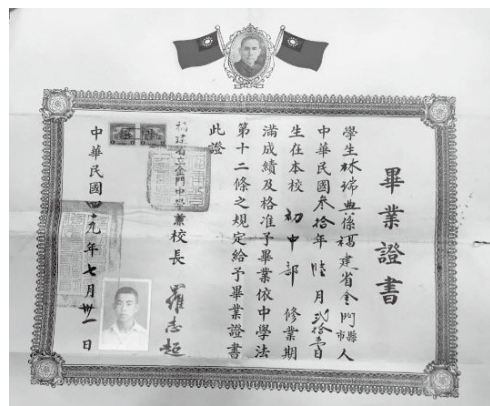 畢業證書
學生林瑞典係福建省金門縣市人
中華民國叁拾年陸月 日
生在本校初中部修業期
滿成績及格准予畢業依中學法
第十二條之規定給予畢業證書
此證
福建省立金門中學兼校長 羅志超
中華民國四十九年七月卅一日